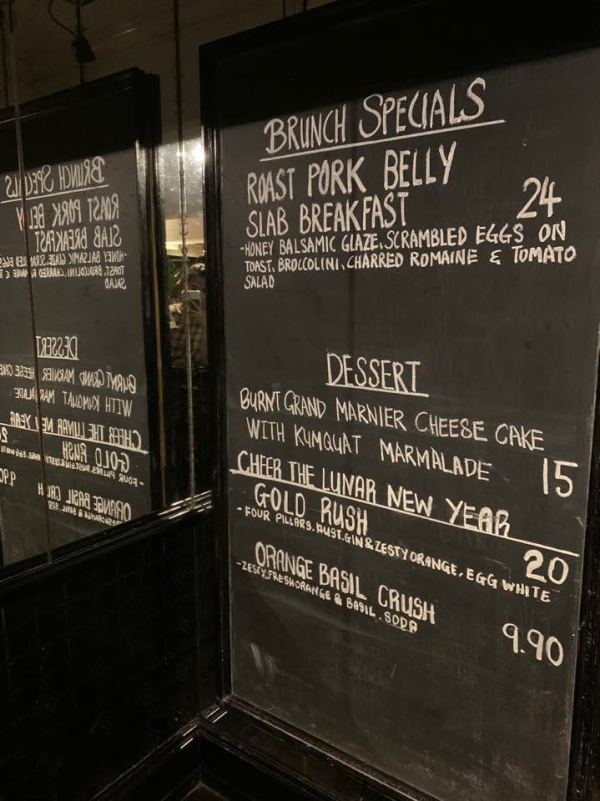 BRUNCH SPECIALS
ROAST PORK BELLY
SLAB BREAKFAST 24
-HONEY BALSAMIC GLAZE, SCRAMBLED EGGS ON
TOAST, BROCCOLINI, CHARRED ROMAINE & TOMATO
SALAD
DESSERT
BURNT GRAND MARNIER CHEESE CAKE
WITH KUMQUAT MARMALADE 15
CHEER THE LUNAR NEW YEAR
GOLD RUSH 20
-FOUR PILLARS.AUST.GIN & ZESTY ORANGE, EGG WHITE
ORANGE BASIL CRUSH 9.90
-ZESTY,FRESH ORANGE & BASIL.SODA